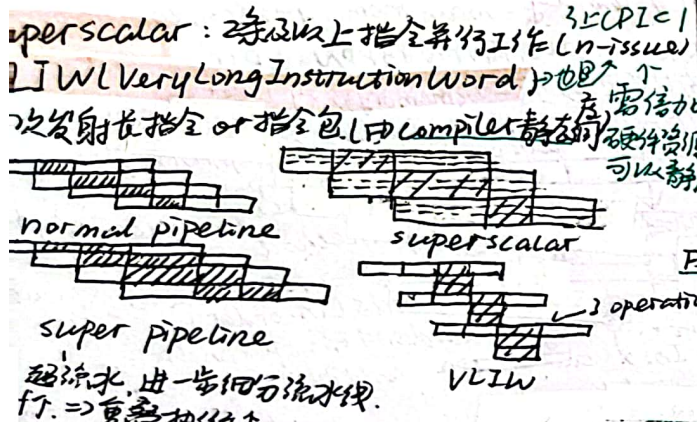 perscalar：2条及以上指令并行工作(n-issue)
让CPI<1
LIW(VeryLongInstructionWord)
次发射长指令 or 指令包.(由compiler静态
需倍
硬件资源
可以静
normal pipeline
superscalar
super pipeline
3 operati
VLIW
超流水,进一步细分流水线.